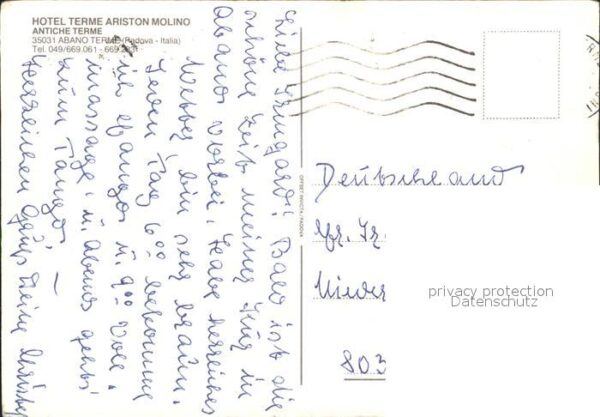 HOTEL TERME ARISTON MOLINO
ANTICHE TERME
35031 ABANO TERME (Padova - Italia)
Tel. 049/669.061 - 669
Liebe Irmgard! Bald ist die
schöne Zeit meiner Kur in
Abano vorbei. Habe herrliches
Wetter bin sehr braun.
Jeden Tag 6⁰⁰ bekomme
ich Fango u. 9⁰⁰ Voll.
massage u. Abends gehts
zum Tango! —
Herzlichen Gruß Deine
OFFSET INVICTA - PADOVA
Deutschland
Fr.
Nieder
803
privacy protection
Datenschutz